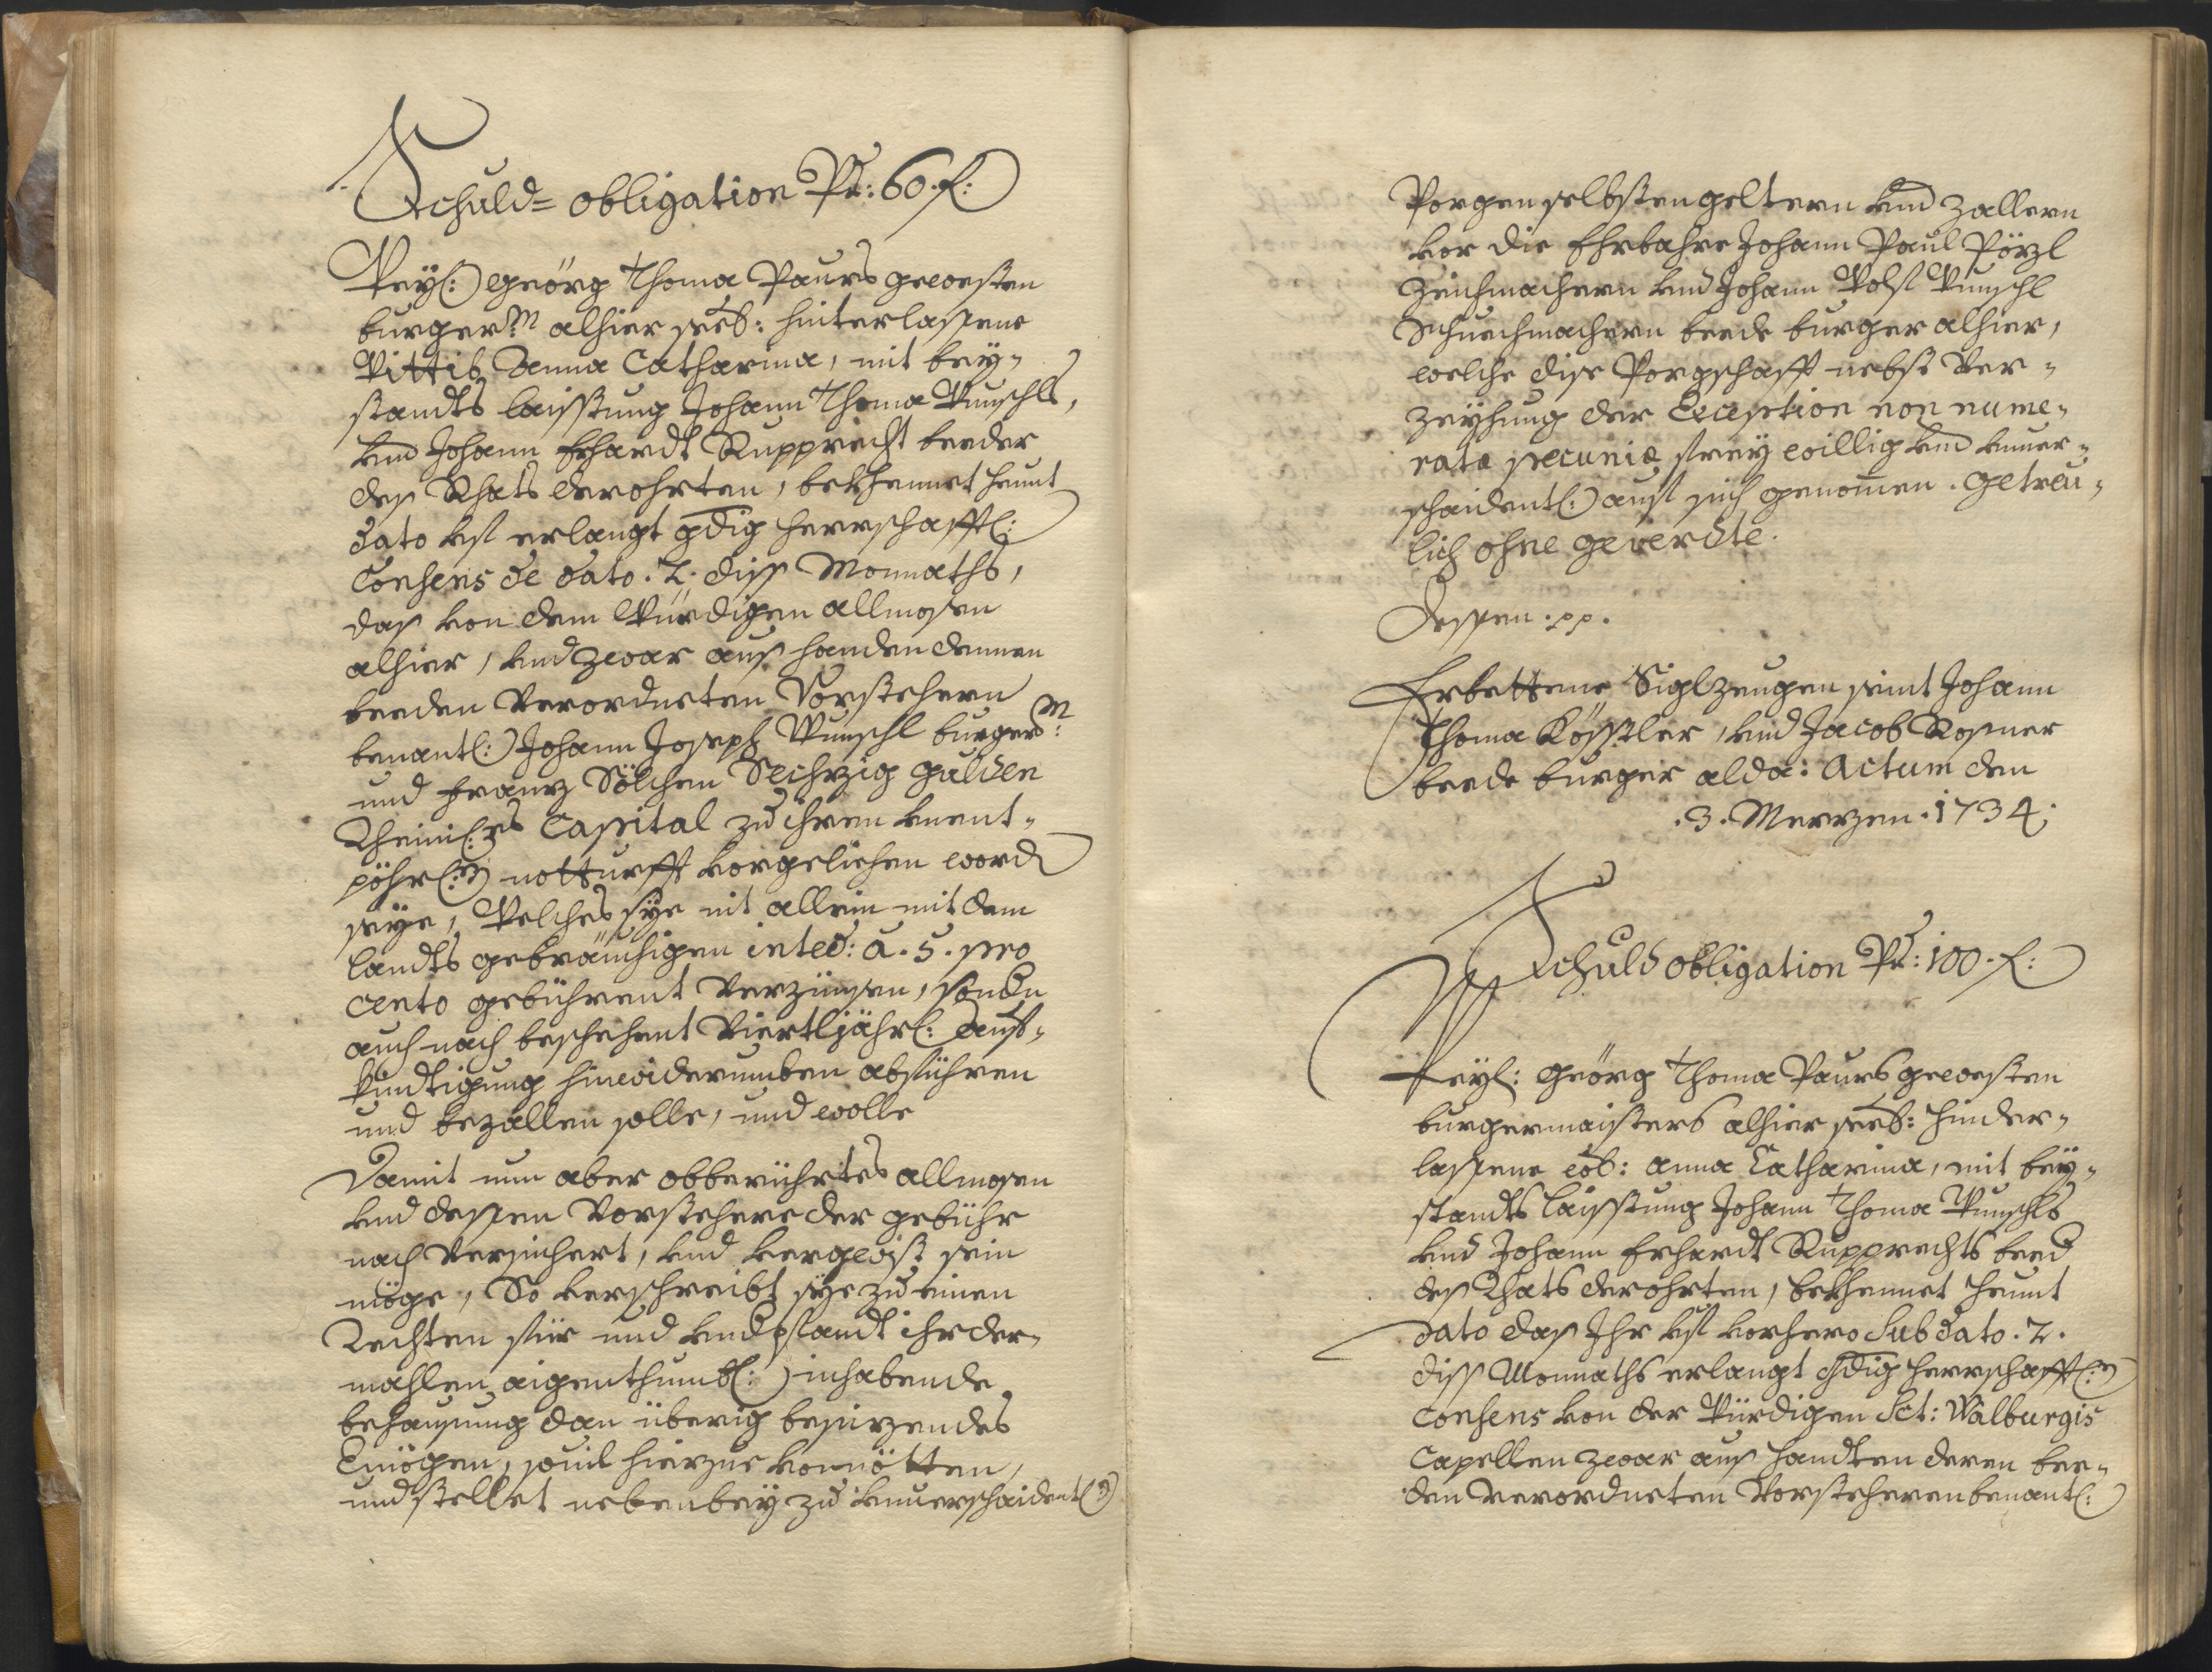 Schuld= obligation Pr: 60. f:
Weyl: Geörg Thoma Paurs gewesten
burgerM alhier seeb: hinterlassene
Wittib Anna Catharina, mit bey=
standts laisstung Johann Thoma Wunschls,
vnd Johann Erhardt Rupprecht beeder
des Rhats derohrten, bekhennet heunt
dato vf erlangt gdig herrschafftl:
Consens de dato. 2. diss Monnaths,
das von dem Würdigen allmosen
alhier, vnd zwar aus handen dennen
beeden verordneten Vorstehern
benantl: Johann Joseph Wunschl burgerM:
und Franz Sölchen Sechzig gulden
Rheinl:es Capital zu ihren vnent=
pöhrl:n notturfft vorgelichen word
seye, Welches sye nit allein mit dem
landts gebräuchigen inteē: a. 5. pro
cento gebührent verzünsen, sondn
auch nach beschehent viertljährl: auf=
kündtigung hinwiderumben abführen
und bezallen solle, und wolle
Damit nun aber obberührtes allmosen
vnd dessen Vorstehere der gebühr
nach versichert, vnd vergwist sein
möge, So verschreibt sye zu einen
Rechten für und vndtpfandt ihr der=
mahlen aigenthumbl: inhabende
behausung dan überig besizendes
Vermögen, souil hierzue vonnötten,
und stellet nebenbey zu vnuerschaidentl:n
Porgen selbsten geltern vnd zallern
vor die Ehrbahre Johann Paul Pözl
Zeichmachern vnd Johann Wolf Wunschl
Schuechmachern beede burger alhier,
welche dise Porgschafft nebst ver=
zeyhung der Exception non nume=
ratæ pecuniæ freywillig vnd vnuer=
schaidentl: auf sich genomen. getreu=
lich ohne geverdte.
Dessen. pp.
Erbettene Siglzeugen seint Johann
Thoma Kösstler, vnd Jacob Rosner
beede burger alda: Actum den
.3. Merzen. 1734.
Schuld obligation Pr: 100. f:
Weyl: Geörg Thoma Paurs gewesten
burgermaisters alhier seeb: hinder=
lassene wb: Anna Catharina, mit bey=
standts laisstung Johann Thoma Wunschls
vnd Johann Erhardt Rupprechts beed
des Rhats derohrten, bekhennet heunt
dato das Ihr vf vorhero sub dato. 2.
diss Monnaths erlangt gdig herrschafftl:n
Consens von der Würdigen Sct: Walburgis
Capellen zwar aus handten deren bee=
den verordneten Vorstehern benantl: